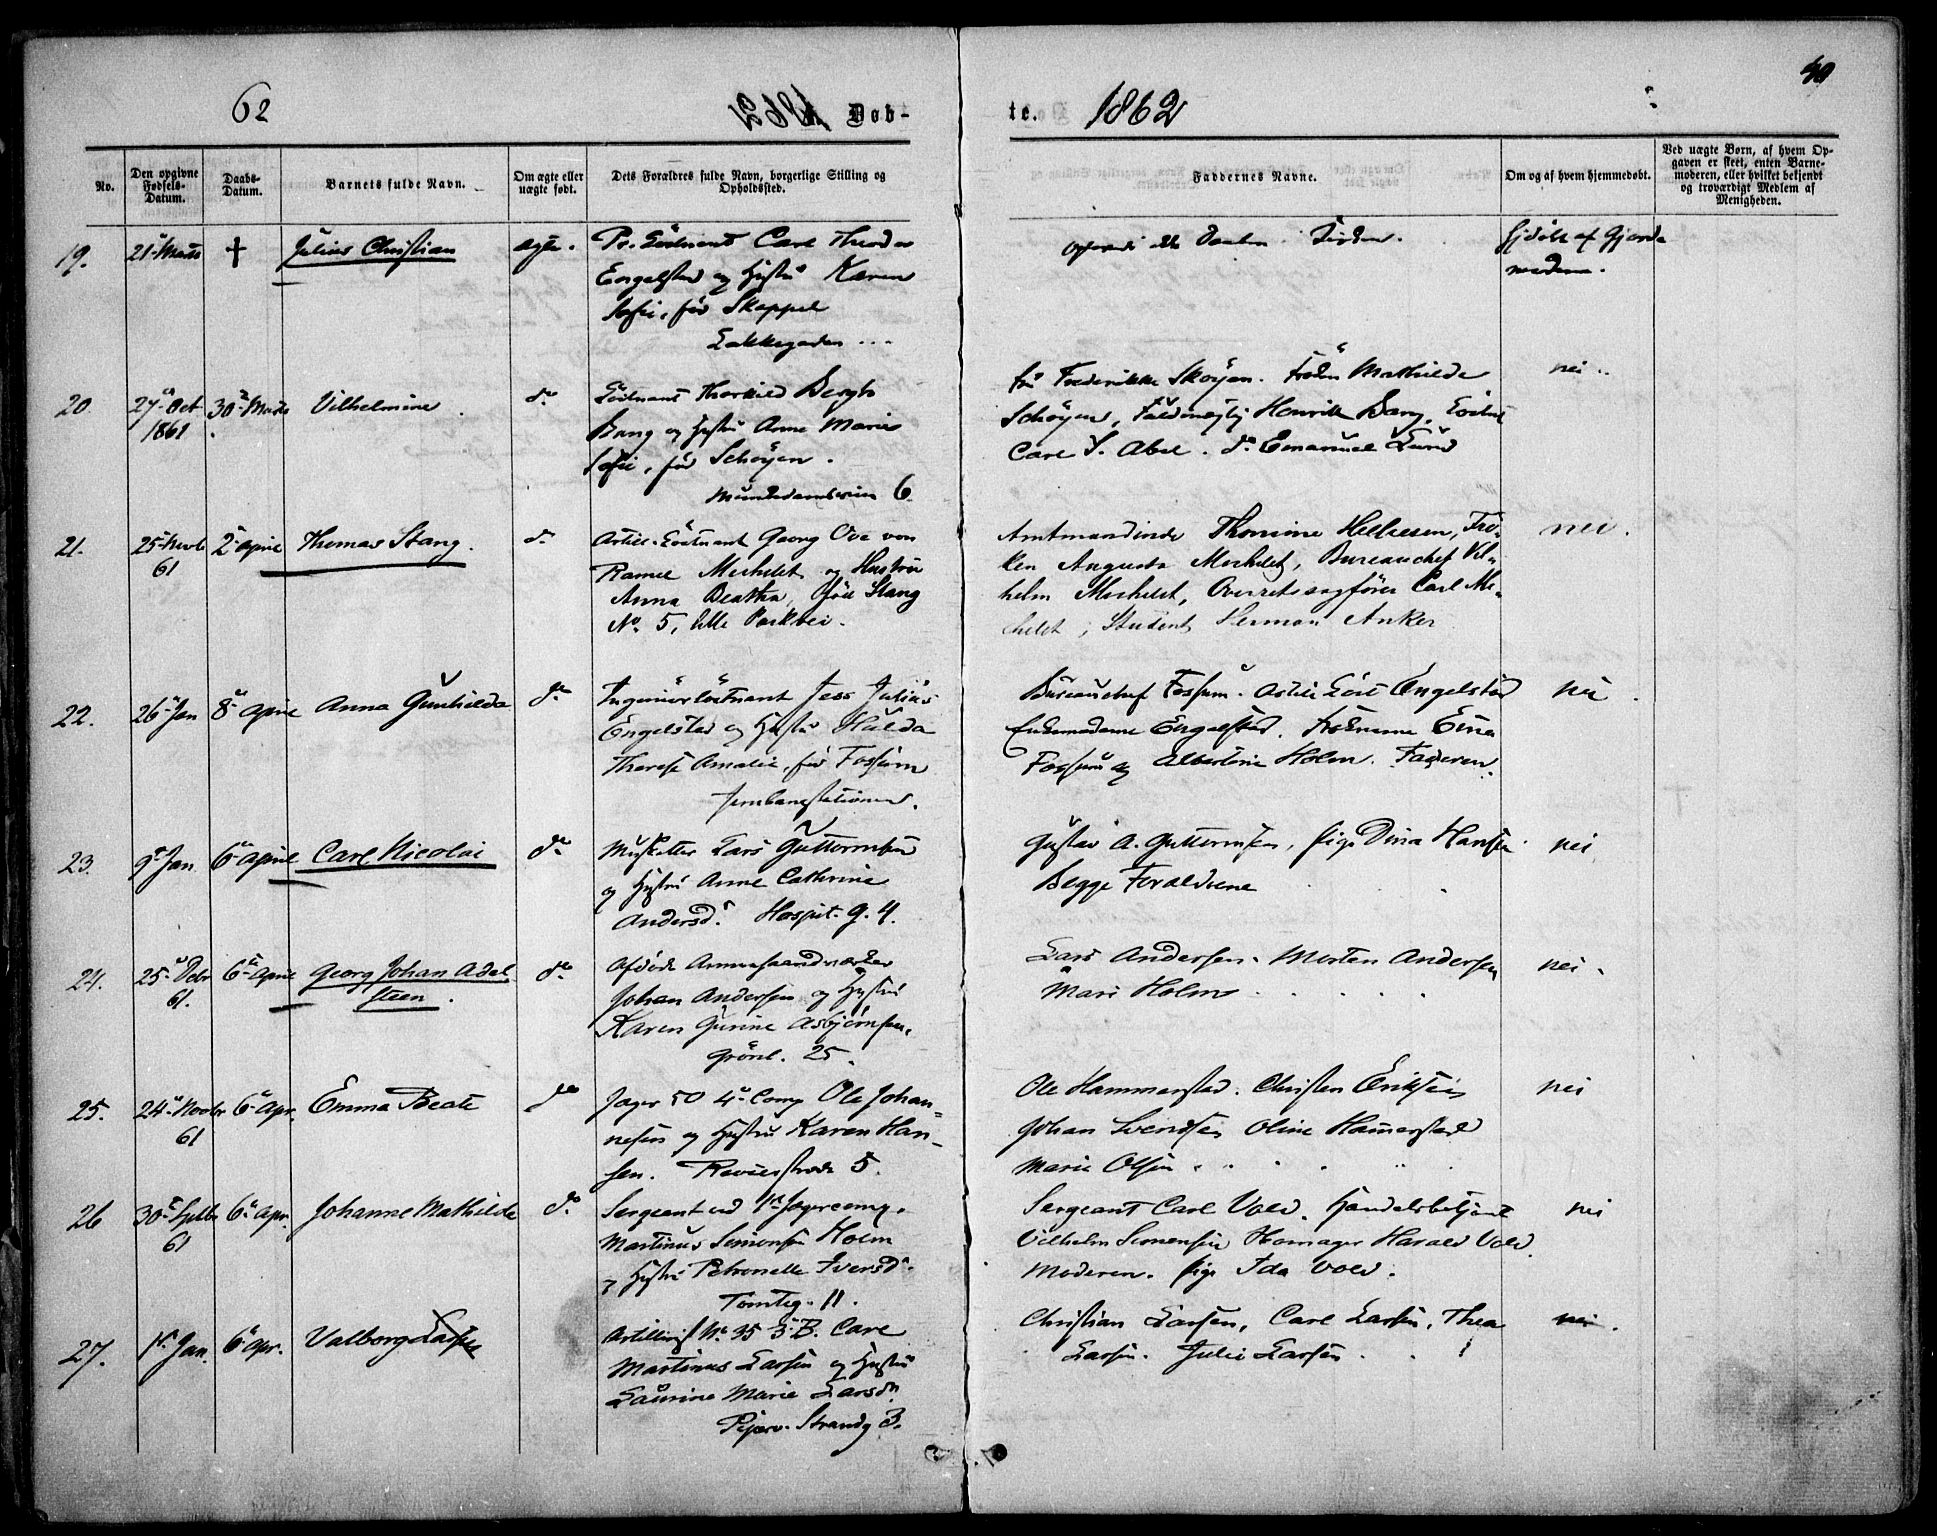 62
1862 Døb-
te. 1862
40
No.
Den opgivne Fødsels-Datum.
Daabs-Datum.
Barnets fulde Navn.
Om ægte eller uægte født.
Dets Forældres fulde Navn, borgerlige Stilling og Opholdssted.
Faddernes Navne.
Om og af hvem hjemmedøbt.
Ved uægte Børn, af hvem Op-
gaven er skeet, enten Barne-
moderen, eller hvilket bekjendt
og troværdigt Medlem af
Menigheden.
19. 21 Marts + Julius Christian ægte. Pr. Løitnant Carl Theodor
Engelstad og Hustru Karen
Sofie, før Skappel
Lakkegaden
hjdøbt af Gjorde
moderen.
20. 27 Oct 1861 30 Marts Vilhelmine do Løitnant Thorkild Bergh
Bang og Hustru Anne Marie
Sofie, før Schøyen.
Munkedamsveien 6
Fru Frederikke Skøyen. Frøken Mathilde
Schøyen, Henrik Bang,
Carl S. Abel. do Emanuel Lund
nei
21. 25 Novb 61 2 April Thomas Stang. do Artill. Løitnant Georg Ove von
Ramel Michelet og Hustru
Anna Beatha, født Stang
No 5, lille Parkvei.
Amtmandinde Thomine Hellesen, Frø-
ken Augusta Michelet, Bureauchef Vil-
helm Michelet, Overretssagfører Carl Mi-
chelet, Student Herman Anker
nei.
22. 26 Jan 8 April Anna Gunhilda do Ingeniørløitnant Jess Julius
Engelstad og Hustru Hulda
Therese Amalie, før Fossum
Jernbanestationen.
Bureauchef Fossum. Artill Løit Engelstad
Enkemadame Engelstad. Frøknerne
Fossum og Albertine Holm. Faderen.
nei.
23. 9 Jan 6 April Carl Nicolai do Musketter Lars Guttormsen
og Hustru Anne Cathrine
Andersd. Hospit. g. 4.
Gustav A. Guttormsen, Pige Dina Hansen
Begge Forældrene
nei
24. 25 Debr 61. 6 April Georg Johan Adel
steen. do Afdøde
Johan Andersen og Hustru
Karen Gurine Asbjørnsen,
Grønl. 25.
Lars Andersen. Morten Andersen
Mari Holm
nei.
25. 24 Novbr 61 6 Apr. Emma Beate do Jæger 50 4 Comp Ole Johan-
nesen og Hustru Karen Han-
sen. Revierstræde 5.
Ole Hammerstad. Christen Eriksen
Johan Svendsen Oline Hamerstad
Marie Olsen
nei
26 30 Septbr 61 6 Apr. Johanne Mathilde do Sergeant ved 1 Jægercomp.
Martinus Simonsen Holm
og Hustru Petronelle Iversd.
Tomteg. 11.
Sergeant Carl Vold. Handelsbetjent
Vilhelm Simensen Harald Vold.
Moderen. Pige Ida Vold.
nei
27. 1 Jan. 6 Apr. Valborg Larsen Artillerist No 35 3 B. Carl
Martinus Larsen og Hustru
Laurine Marie Larsdr
Piperv. Strandg 3.
Christian Larsen, Carl Larsen, Thea
Larsen. Julie Larsen.
nei.